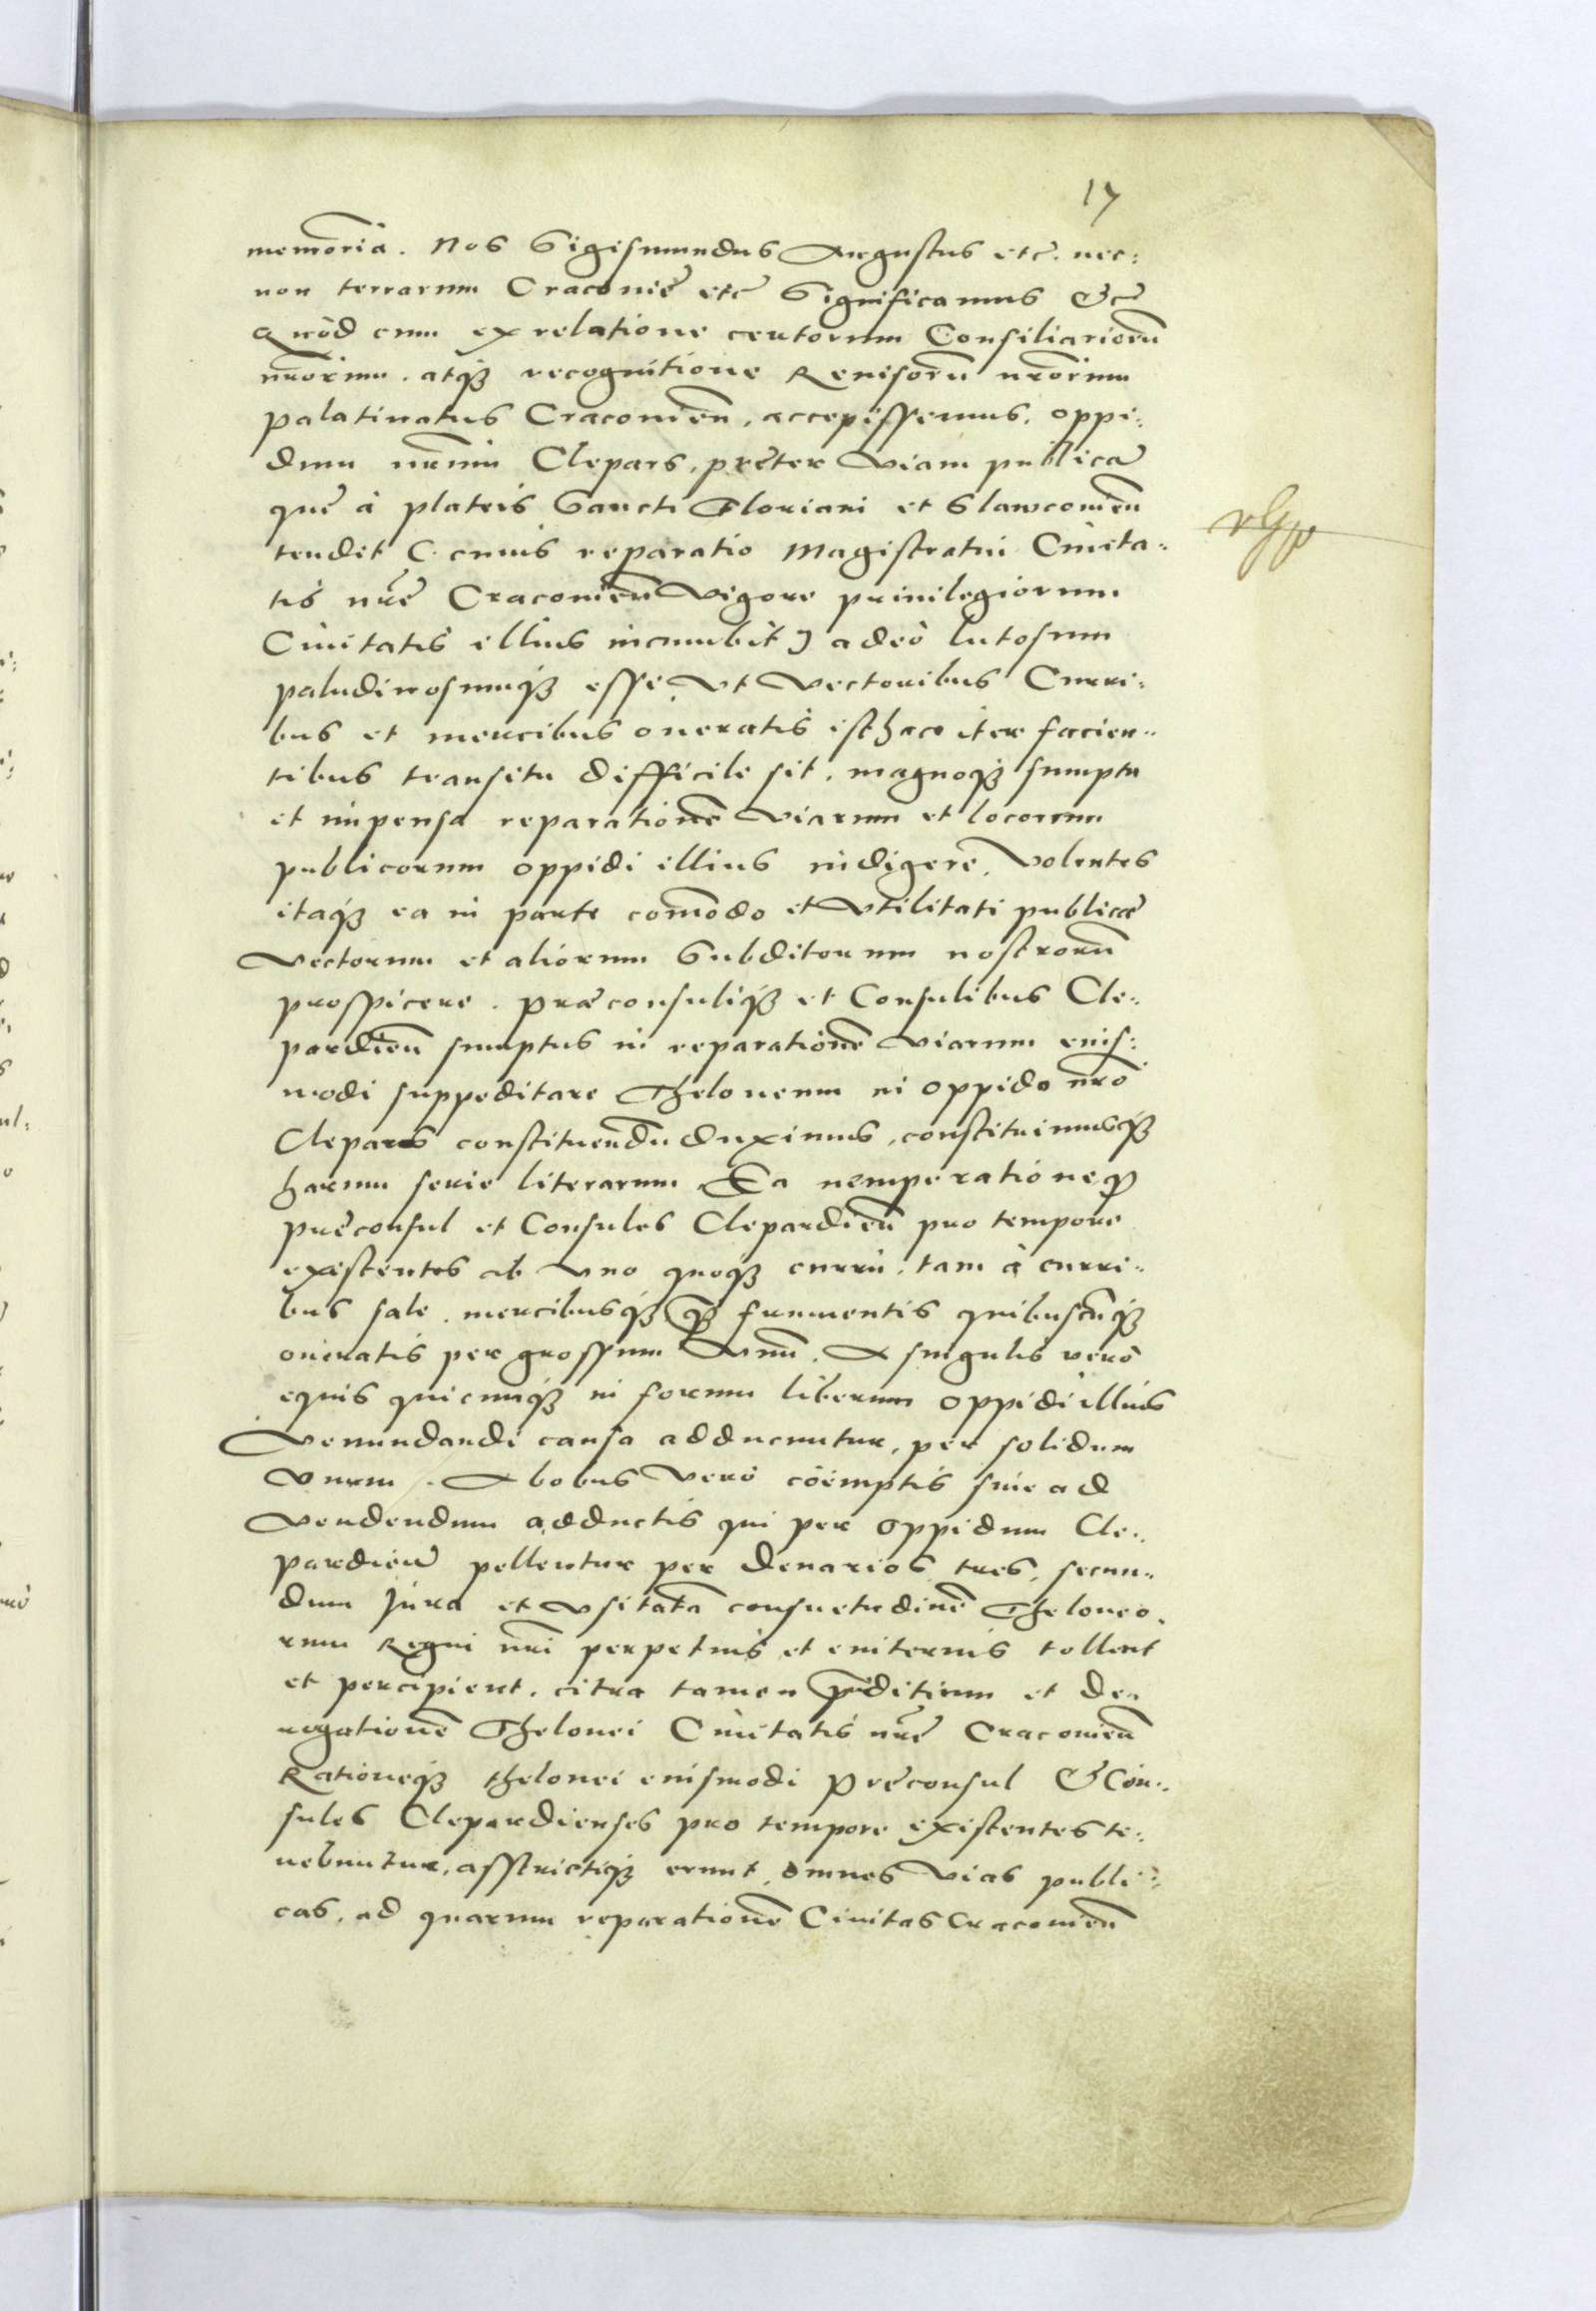 17
memoriā. Nos Sigismundus Augustus etc̄. nec:
non terrarum Cracovię etc̄ Significamus &c̄
Quòd cum ex relatione certorum Consiliariorū
nr̄orum. atqꝫ recognitione Revisorū nr̄orum
palatinatus Cracovien̄. accepissemus. oppi:
dum nr̄um Clepars. pręter viam publicā
quę à plateis Sancti Floriani et Slawcovien̄
tendit (cuius reparatio Magistratui Civita:
tis nr̄ę Cracovien̄ vigore privilegiorum
Civitatis illius incumbit) adeò lutosum
paludinosumqꝫ esse, ut vectoribus Curri:
bus et mercibus oneratis isthac iter facien:
tibus transitu difficile sit. magnoqꝫ sumptu
et impensa reparationē viarum et locorum
publicorum oppidi illius indigere. Volentes
itaqꝫ ea in parte com̄odo et utilitati publicæ
vectorum et aliorum Subditorum nostrorū
prospicere. Præconsuliqꝫ et Consulibus Cle:
pardien̄ sumptus in reparationē viarum eius:
modi suppeditare Theloneum in oppido nr̄o
Clepars constituendū duximus, constituimusqꝫ
harum serie literarum Ea nempe ratione ꝙ
pręconsul et Consules Clepardien̄ pro tempore
existentes ab uno quoqꝫ curru. tam à curri:
bus sale. mercibusqꝫ qꝫ frumentis quibuscūqꝫ
oneratis per grossum unū. A singulis verò
equis quicumqꝫ in forum liberum oppidi illius
Venundandi causa adducuntur, per solidum
unum. A bobus verò coëmptis sive ad
vendendum adductis qui per oppidum Cle:
pardien̄ pellentur per denarios tres, secun:
dum Jura et usitatā consuetudinē Theloneo:
rum Regni nr̄i perpetuis et eviternis tollent
et percipient. citra tamen p̄iuditium et de:
rogationē Thelonei Civitatis nr̄ę Cracovien̄
Rationeqꝫ thelonei eiusmodi Pręconsul & Con:
sules Clepardienses pro tempore existentes te:
nebuntur, asstrictiqꝫ erunt. omnes vias publi:
cas, ad quarum reparationē Civitas Cracovien̄